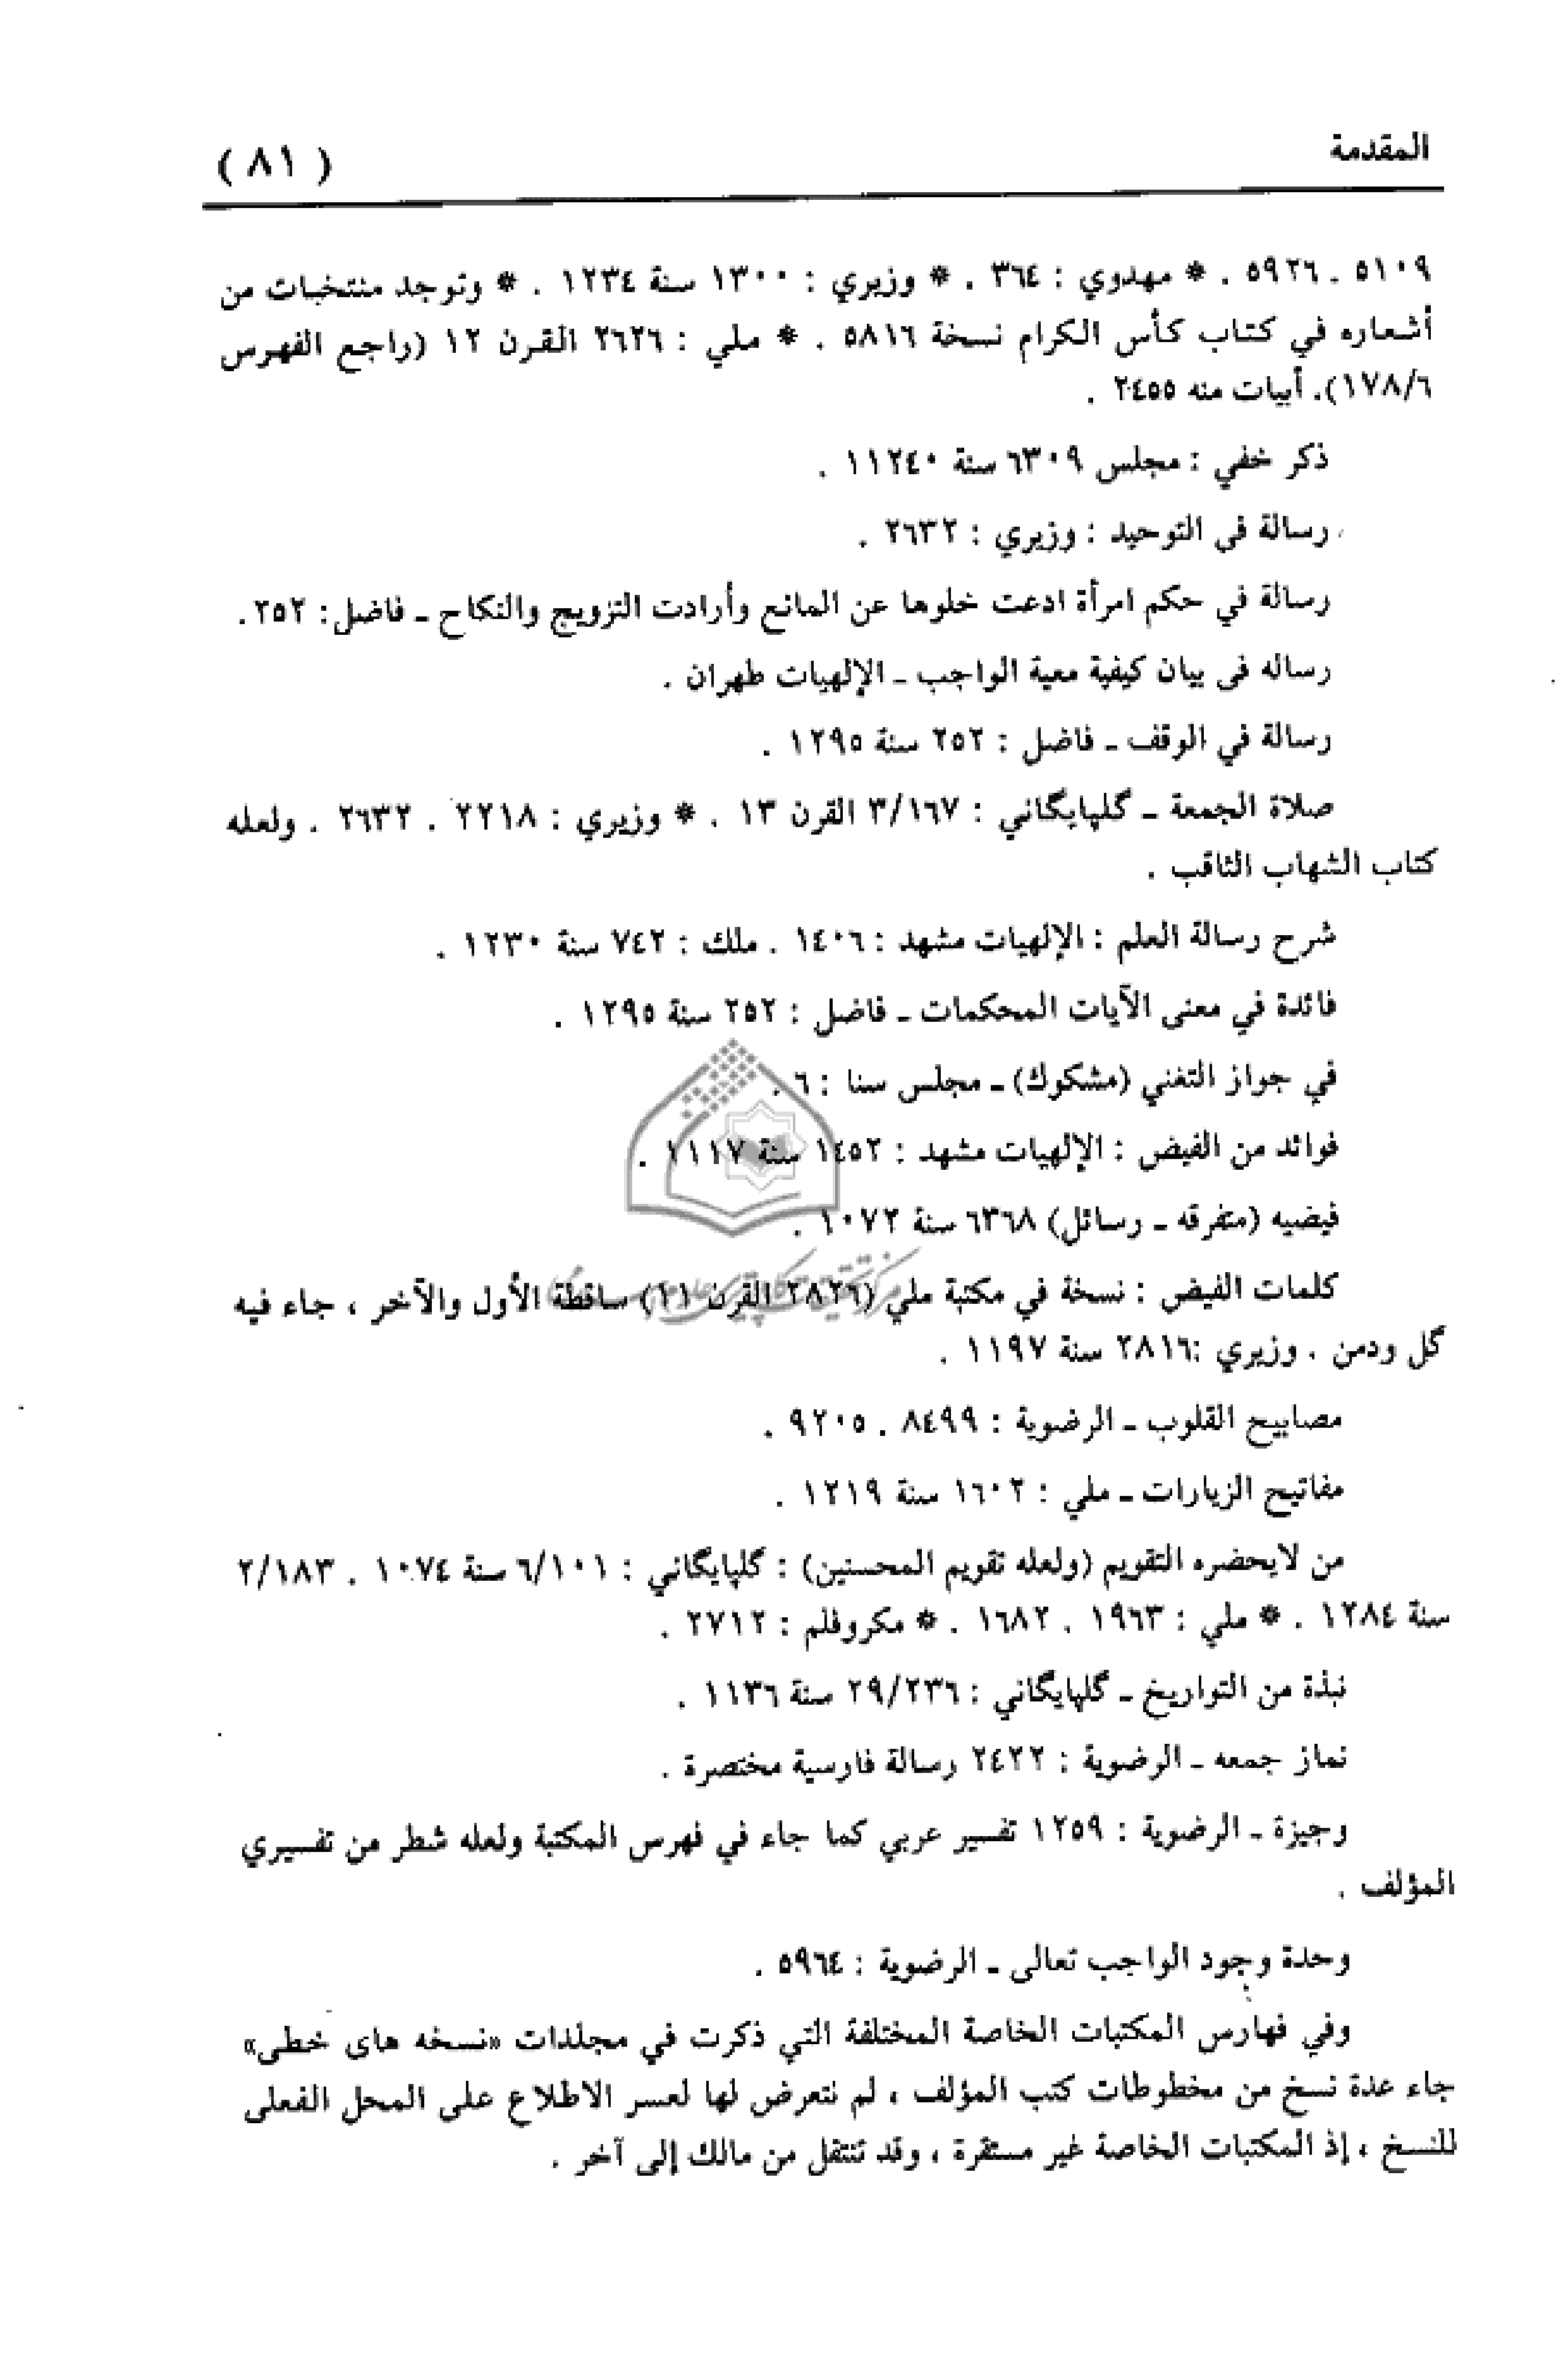 المقدمة
( ٨١ )
٥١٠٩ . ٥٩٢٦ . * مهدوي : ٣٦٤ . * وزيري : ١٣٠٠ سنة ١٢٣٤ . * وتوجد منتخبات من
أشعاره في كتاب كأس الكرام نسخة ٥٨١٦ . * ملي : ٢٦٢٦ القرن ١٢ (راجع الفهرس
١٧٨/٦). أبيات منه ٢٤٥٥ .
ذكر خفي : مجلس ٦٣٠٩ سنة ١١٢٤٠ .
رسالة في التوحيد : وزيري : ٢٦٣٢ .
رسالة في حكم امرأة ادعت خلوها عن المانع وأرادت التزويج والنكاح ـ فاضل : ٢٥٢ .
رساله في بيان كيفية معية الواجب ـ الإلهيات طهران .
رسالة في الوقف ـ فاضل : ٢٥٢ سنة ١٢٩٥ .
صلاة الجمعة ـ گلپايگاني : ٣/١٦٧ القرن ١٣ . * وزيري : ٢٢١٨ . ٢٦٣٢ . ولعله
كتاب الشهاب الثاقب .
شرح رسالة العلم : الإلهيات مشهد : ١٤٠٦ . ملك : ٧٤٢ سنة ١٢٣٠ .
فائدة في معنى الآيات المحكمات ـ فاضل : ٢٥٢ سنة ١٢٩٥ .
في جواز التغني (مشكوك) ـ مجلس سنا : ٦ .
فوائد من الفيض : الإلهيات مشهد : ١٤٥٢ سنة ١١١٧ .
فيضيه (متفرقه ـ رسائل) ٦٣٦٨ سنة ١٠٧٢ .
كلمات الفيض : نسخة في مكتبة ملي (٢٨٢٦ القرن ١١) ساقطة الأول والآخر ، جاء فيه
گل ودمن . وزيري :٢٨١٦ سنة ١١٩٧ .
مصابيح القلوب ـ الرضوية : ٨٤٩٩ . ٩٢٠٥ .
مفاتيح الزيارات ـ ملي : ١٦٠٢ سنة ١٢١٩ .
من لايحضره التقويم (ولعله تقويم المحسنين) : گلپايگاني : ٦/١٠١ سنة ١٠٧٤ . ٢/١٨٣
سنة ١٢٨٤ . * ملي : ١٩٦٣ . ١٦٨٢ . * مكروفلم : ٢٧١٢ .
نبذة من التواريخ ـ گلپايگاني : ٢٩/٢٣٦ سنة ١١٣٦ .
نماز جمعه ـ الرضوية : ٢٤٢٢ رسالة فارسية مختصرة .
وجيزة ـ الرضوية : ١٢٥٩ تفسير عربي كما جاء في فهرس المكتبة ولعله شطر من تفسيري
المؤلف .
وحدة وجود الواجب تعالى ـ الرضوية : ٥٩٦٤ .
وفي فهارس المكتبات الخاصة المختلفة التي ذكرت في مجلدات «نسخه هاى خطى»
جاء عدة نسخ من مخطوطات كتب المؤلف ، لم نتعرض لها لعسر الاطلاع على المحل الفعلى
للنسخ ، إذ المكتبات الخاصة غير مستقرة ، وقد تنتقل من مالك إلى آخر .